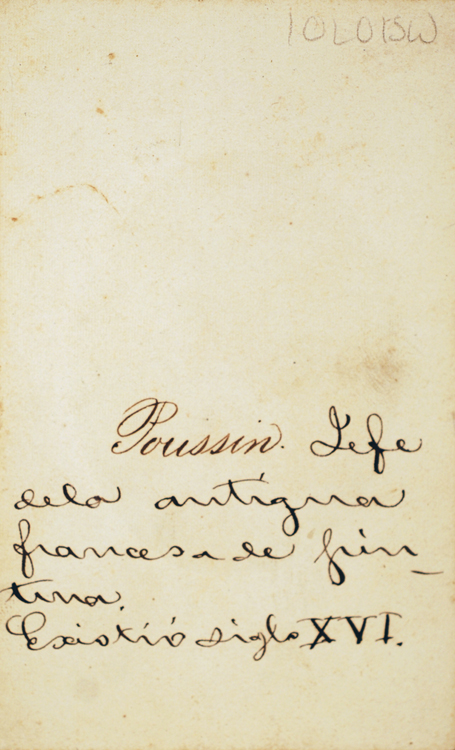 10L013W
Poussin. Jefe
dela antígua
francesa de pin-
tura.
Existió siglo XVI.